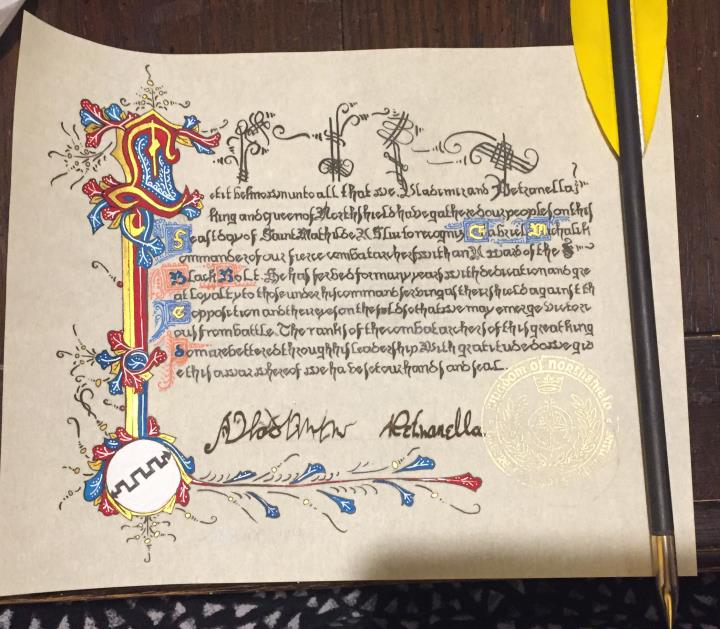 Let it be known unto all that we, Vladimir and Petranella,
King and queen of Northshield have gathered our people on this
Feast day of Saint Mathilde, to Gabriel Michalik
Commander of our fierce combat archers with an Award of the
Black Bolt. He has served for many years with dedication and gre
at loyalty to those under his command serving as their shield against th
e opposition and their eyes on the field so that we may emerge victori
ous from battle. The ranks of the combat archers of this great king
dom are bettered through his leadership. With gratitude do we giv
e this award whereof we have set our hands and seal.
Petranella
Kingdom of Northshield